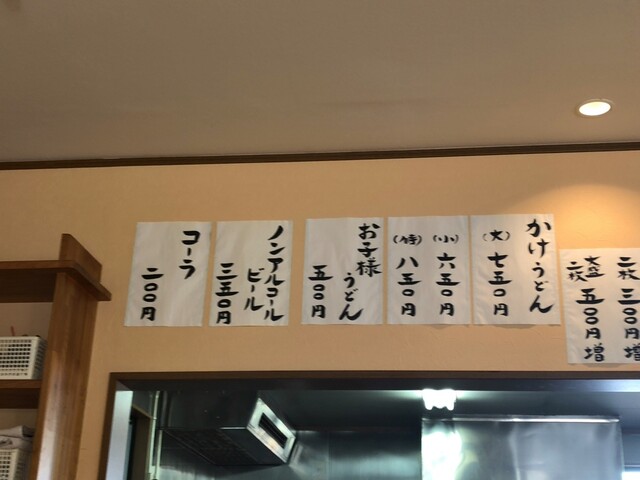 二枚 三〇〇円増
大盛二枚 五〇〇円増
かけうどん
(大) 七五〇円
(小) 六五〇円
(特) 八五〇円
お子様
うどん
五〇〇円
ノンアルコール
ビール
三五〇円
コーラ
二〇〇円